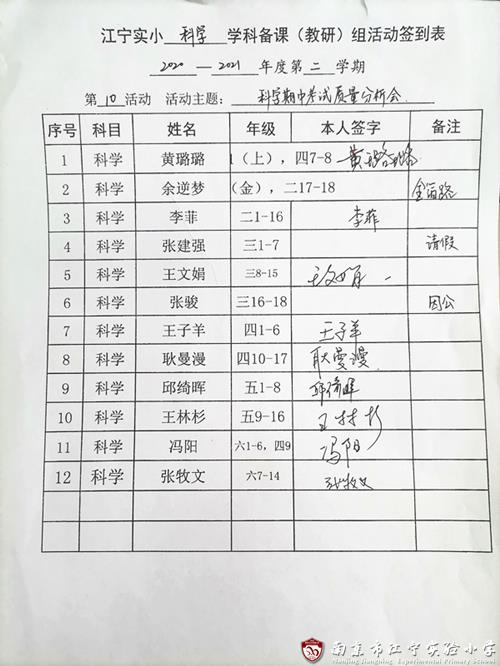 江宁实小 科学 学科备课（教研）组活动签到表
2020 — 2021 年度第 二 学期
第 10 活动 活动主题： 科学期中考试质量分析会
序号 科目 姓名 年级 本人签字 备注
1 科学 黄璐璐 1（上），四7-8 黄璐璐
2 科学 余逆梦 （金），二17-18 金陌路
3 科学 李菲 二1-16 李菲
4 科学 张建强 三1-7 请假
5 科学 王文娟 三8-15 王文娟
6 科学 张骏 三16-18 因公
7 科学 王子羊 四1-6 王子羊
8 科学 耿曼漫 四10-17 耿曼漫
9 科学 邱绮晖 五1-8 邱绮晖
10 科学 王林杉 五9-16 王林杉
11 科学 冯阳 六1-6，四9 冯阳
12 科学 张牧文 六7-14 张牧文
南京市江宁实验小学
Nanjing Jiangning Experimental Primary School